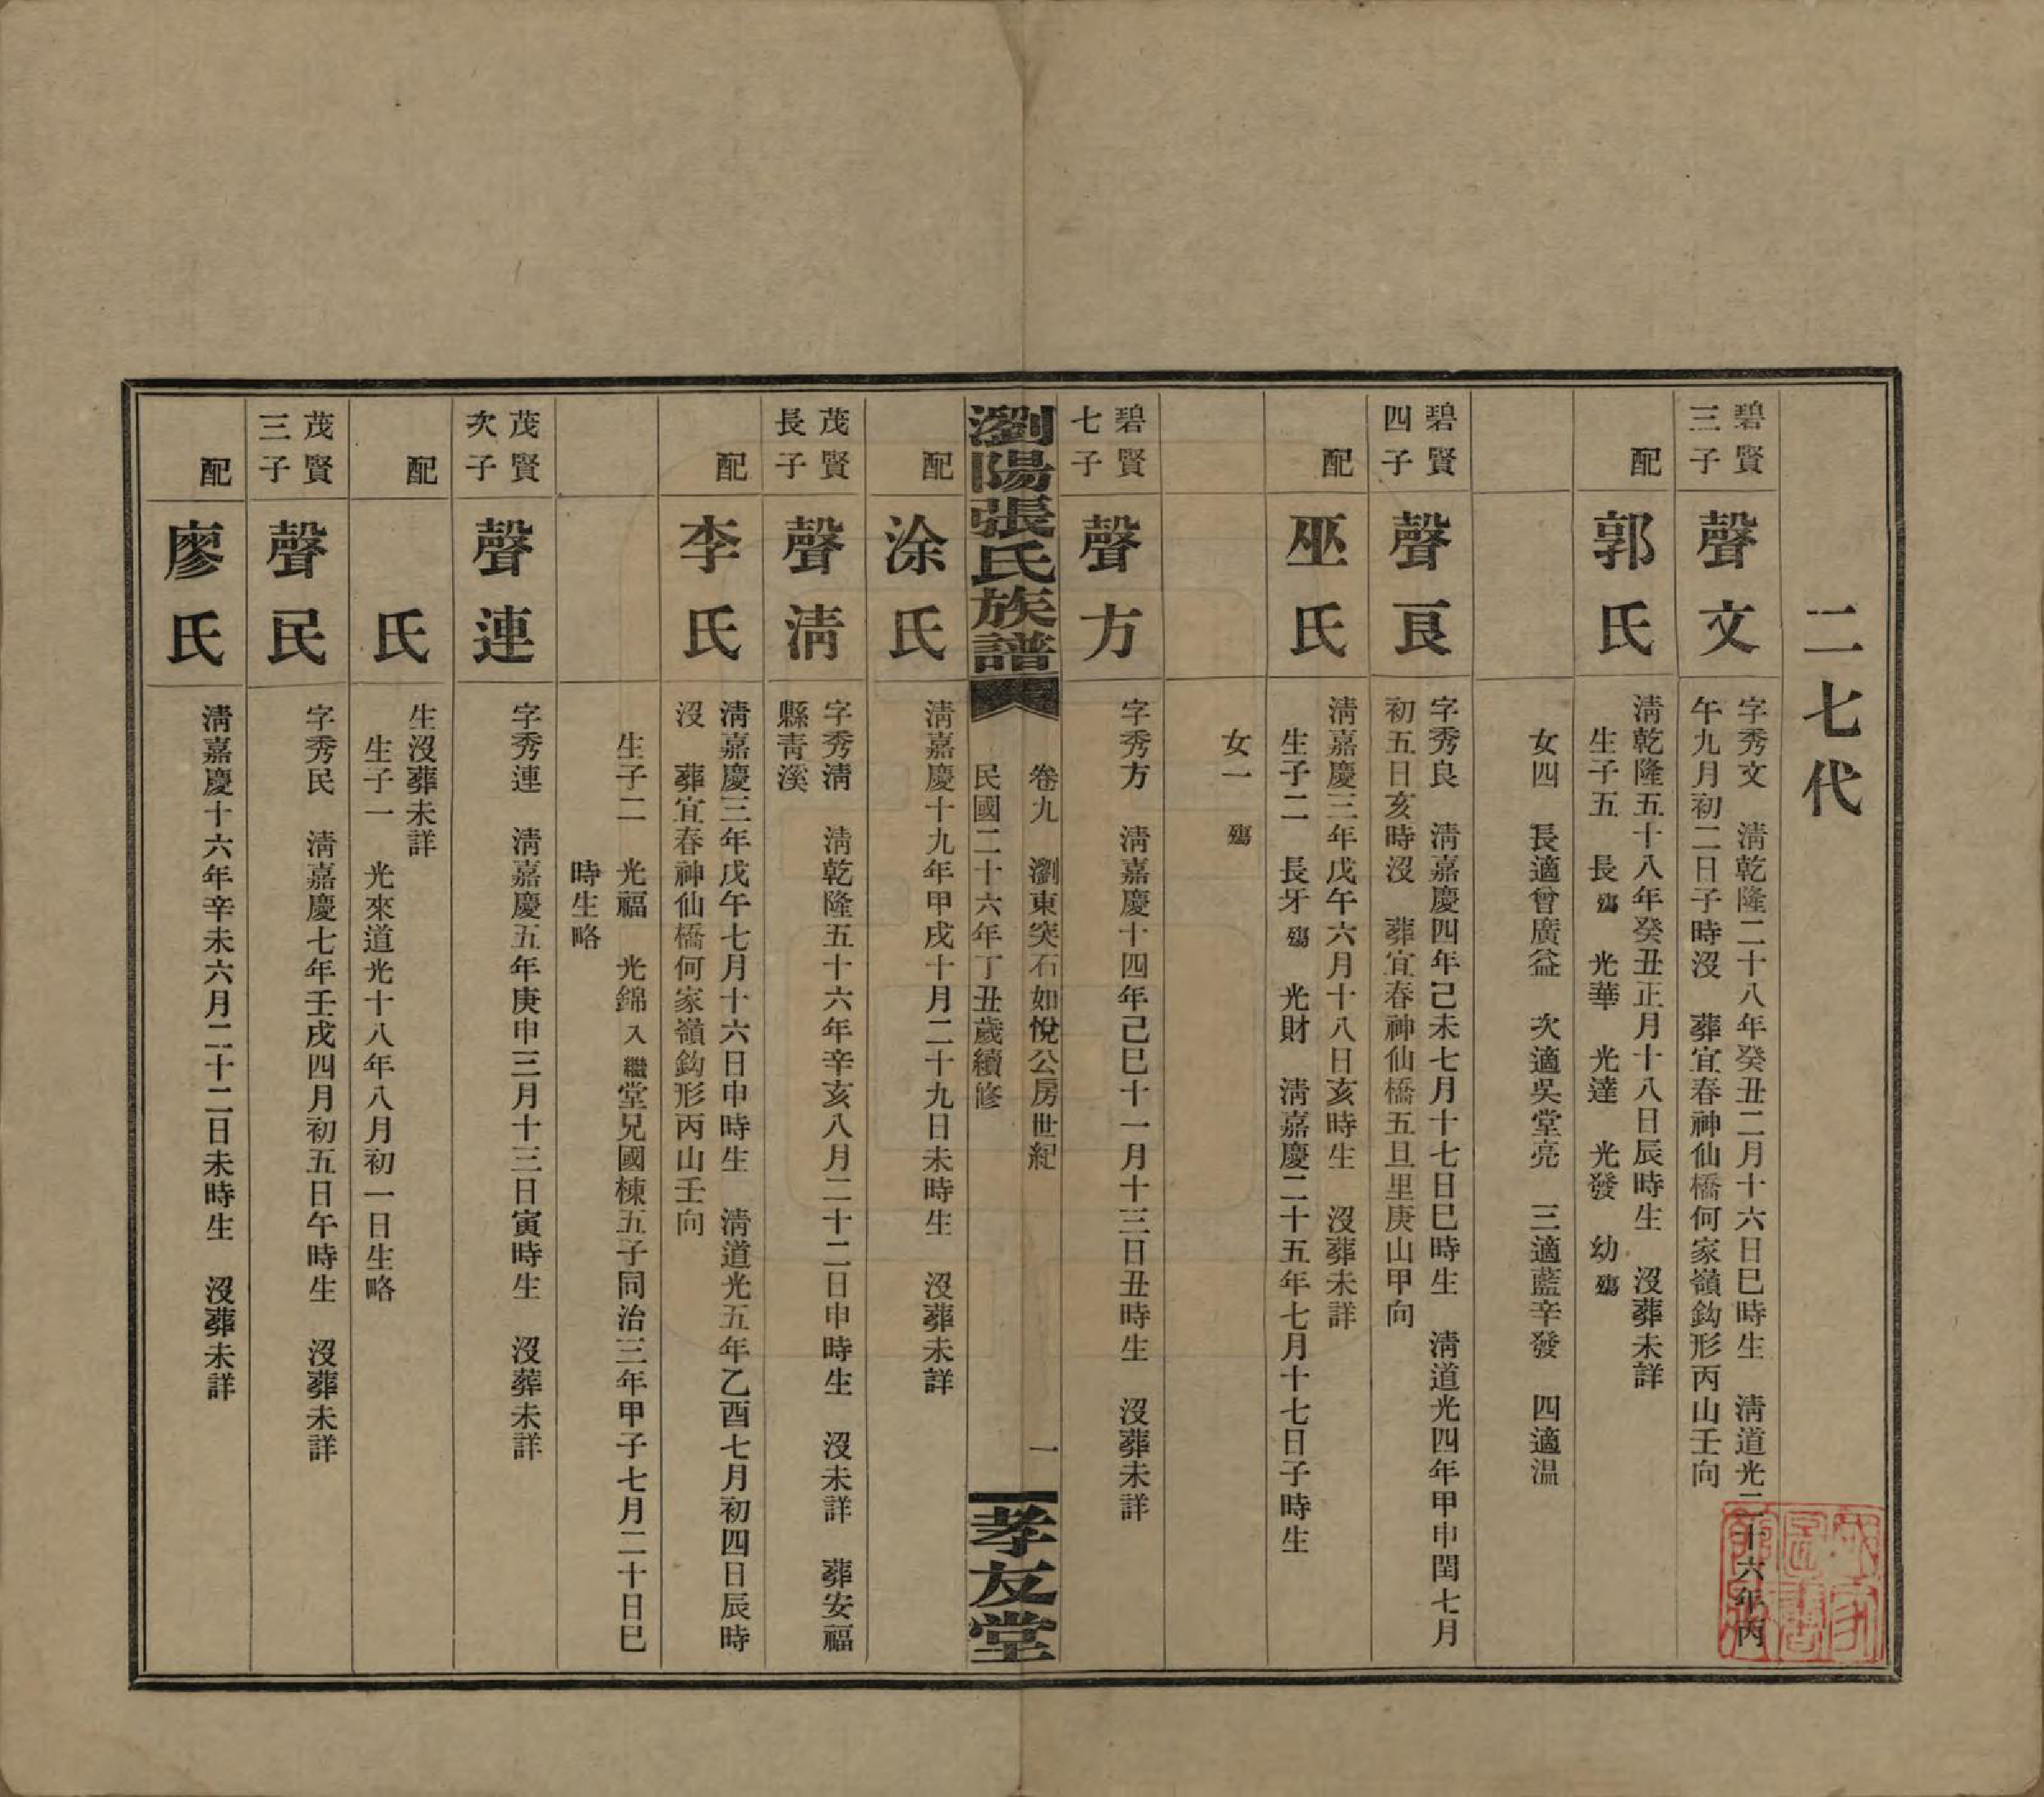 二七代
碧賢
三子
聲文
字秀文　清乾隆二十八年癸丑二月十六日巳時生　清道光二十六年丙
午九月初二日子時沒　葬宜春神仙橋何家嶺鈎形丙山壬向
配
郭氏
清乾隆五十八年癸丑正月十八日辰時生　沒葬未詳
生子五　長殤　光華　光達　光發　幼殤
女四　長適曾廣益　次適吳堂亮　三適藍辛發　四適溫
碧賢
四子
聲良
字秀良　清嘉慶四年己未七月十七日巳時生　清道光四年甲申閏七月
初五日亥時沒　葬宜春神仙橋五旦里庚山甲向
配
巫氏
清嘉慶三年戊午六月十八日亥時生　沒葬未詳
生子二　長牙殤　光財　清嘉慶二十五年七月十七日子時生
女一　殤
碧賢
七子
聲方
字秀方　清嘉慶十四年己巳十一月十三日丑時生　沒葬未詳
瀏陽張氏族譜
卷九　瀏東突石如悅公房世紀　一
民國二十六年丁丑歲續修
孝友堂
配
涂氏
清嘉慶十九年甲戌十月二十九日未時生　沒葬未詳
茂賢
長子
聲清
字秀清　清乾隆五十六年辛亥八月二十二日申時生　沒未詳　葬安福
縣青溪
配
李氏
清嘉慶三年戊午七月十六日申時生　清道光五年乙酉七月初四日辰時
沒　葬宜春神仙橋何家嶺鈎形丙山壬向
生子二　光福　光錦入繼堂兄國棟五子同治三年甲子七月二十日巳
時生略
茂賢
次子
聲連
字秀連　清嘉慶五年庚申三月十三日寅時生　沒葬未詳
配
氏
生沒葬未詳
生子一　光來道光十八年八月初一日生略
茂賢
三子
聲民
字秀民　清嘉慶七年壬戌四月初五日午時生　沒葬未詳
配
廖氏
清嘉慶十六年辛未六月二十二日未時生　沒葬未詳